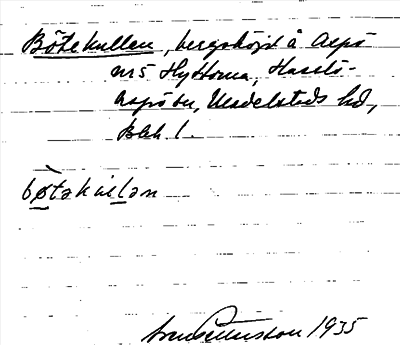 Bötekullen, bergshöjd å Aspö
nr 5 Hyttorna, Hasslö-
Aspö sn, Medelstads hd,
Blek l.
bø̀takullan
1935